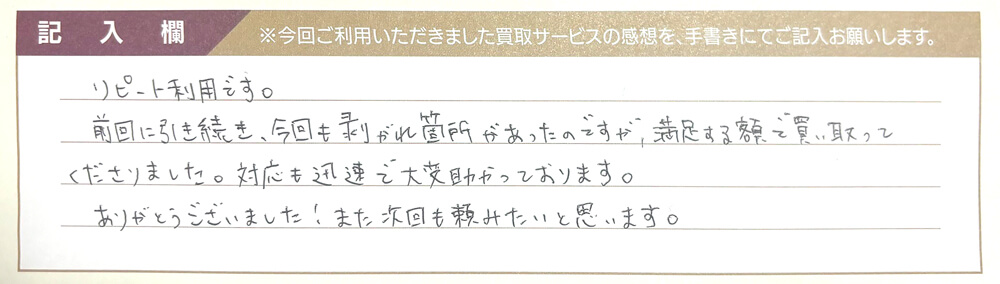 記入欄
※今回ご利用いただきました買取サービスの感想を、手書きにてご記入お願いします。
リピート利用です。
前回に引き続き、今回も剥がれ箇所があったのですが、満足する額で買い取って
くださりました。対応も迅速で大変助かっております。
ありがとうございました！また次回も頼みたいと思います。